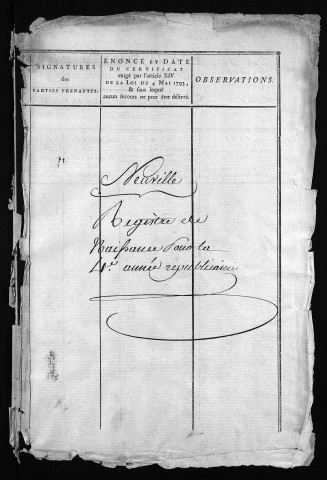 SIGNATURES
des
PARTIES PRENANTES.
ENONCÉ ET DATE
DU CERTIFICAT
exigé par l'article XIV
DE LA LOI DU 4 MAI 1793,
& sans lequel
aucun secours ne peut être délivré.
OBSERVATIONS.
Neuville
Registre de
Naissance pour la
4e. année republicaine